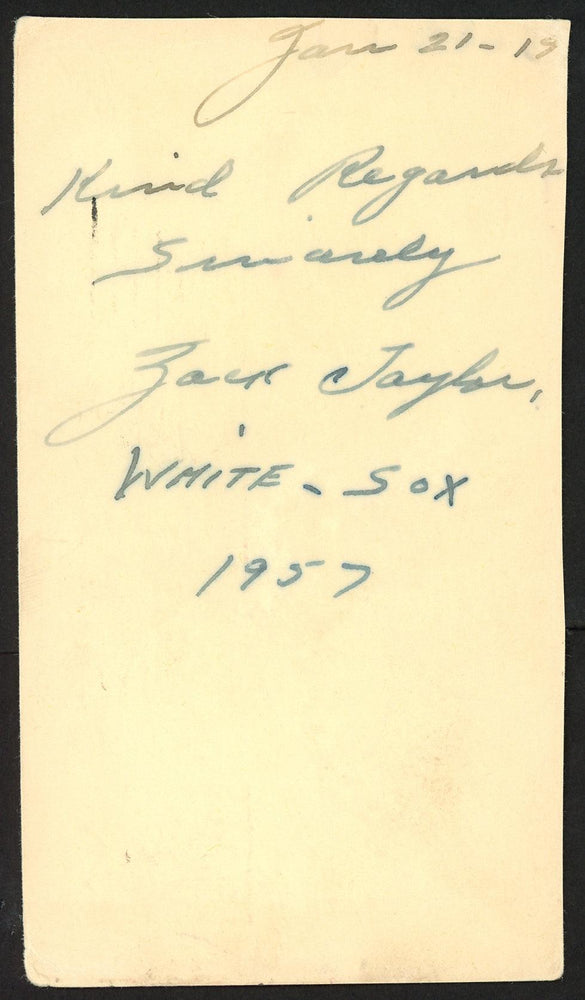 Jan 21-19
Kind Regards
Sincerely
Zack Taylor,
WHITE - SOX
1957